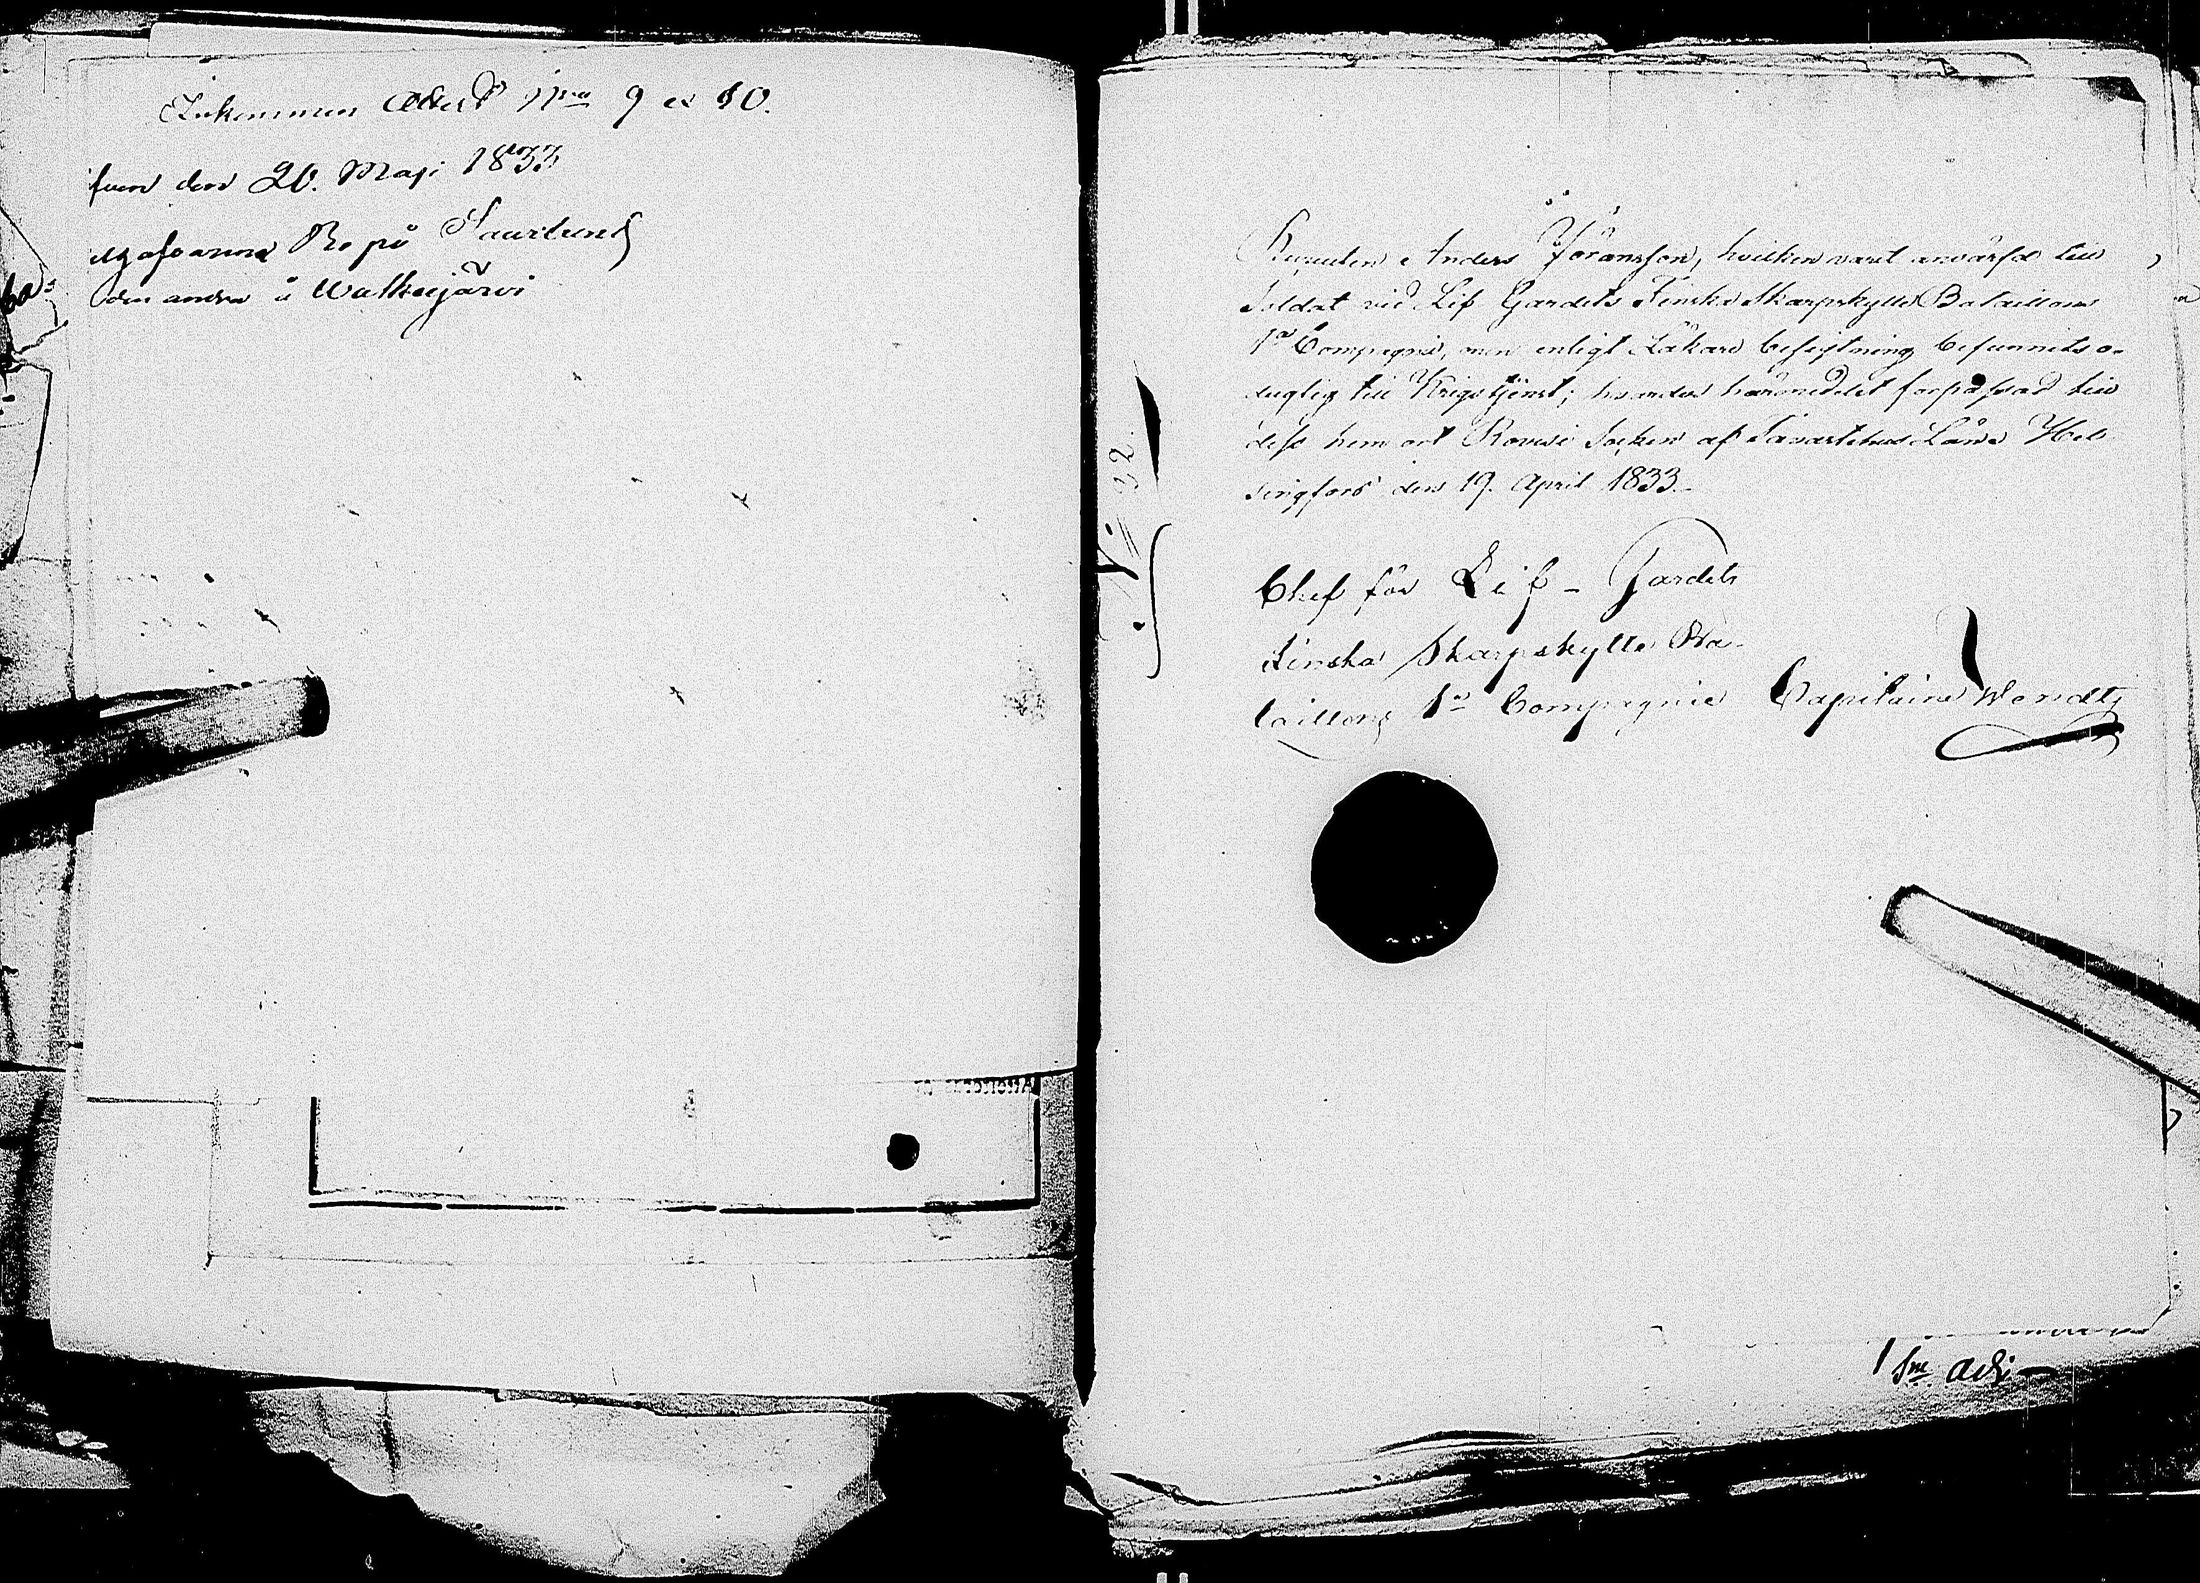 Inkommen Attest No 9 et 10.
den 20. Maji 1833
Bo på Saurlund
den andra å Walkeijärvi
No 32.
Recruten Anders Jöransson, hvilken varit anvärfd till
Soldat vid Lif Gardets Finska Skarpskytte Bataillons
1a Compagnie, men enligt Läkare besigtning befunnits o-
duglig till Krigstjenst; hvarder härmedelst förpassad till
dess hemort Rovisi Socken af Tavastehus Län. Hel-
singfors den 19. April 1833.
Chef för Lif-Gardets
Finska Skarpskytte Ba-
taillons 1a Compagnie Capitaine Wendt